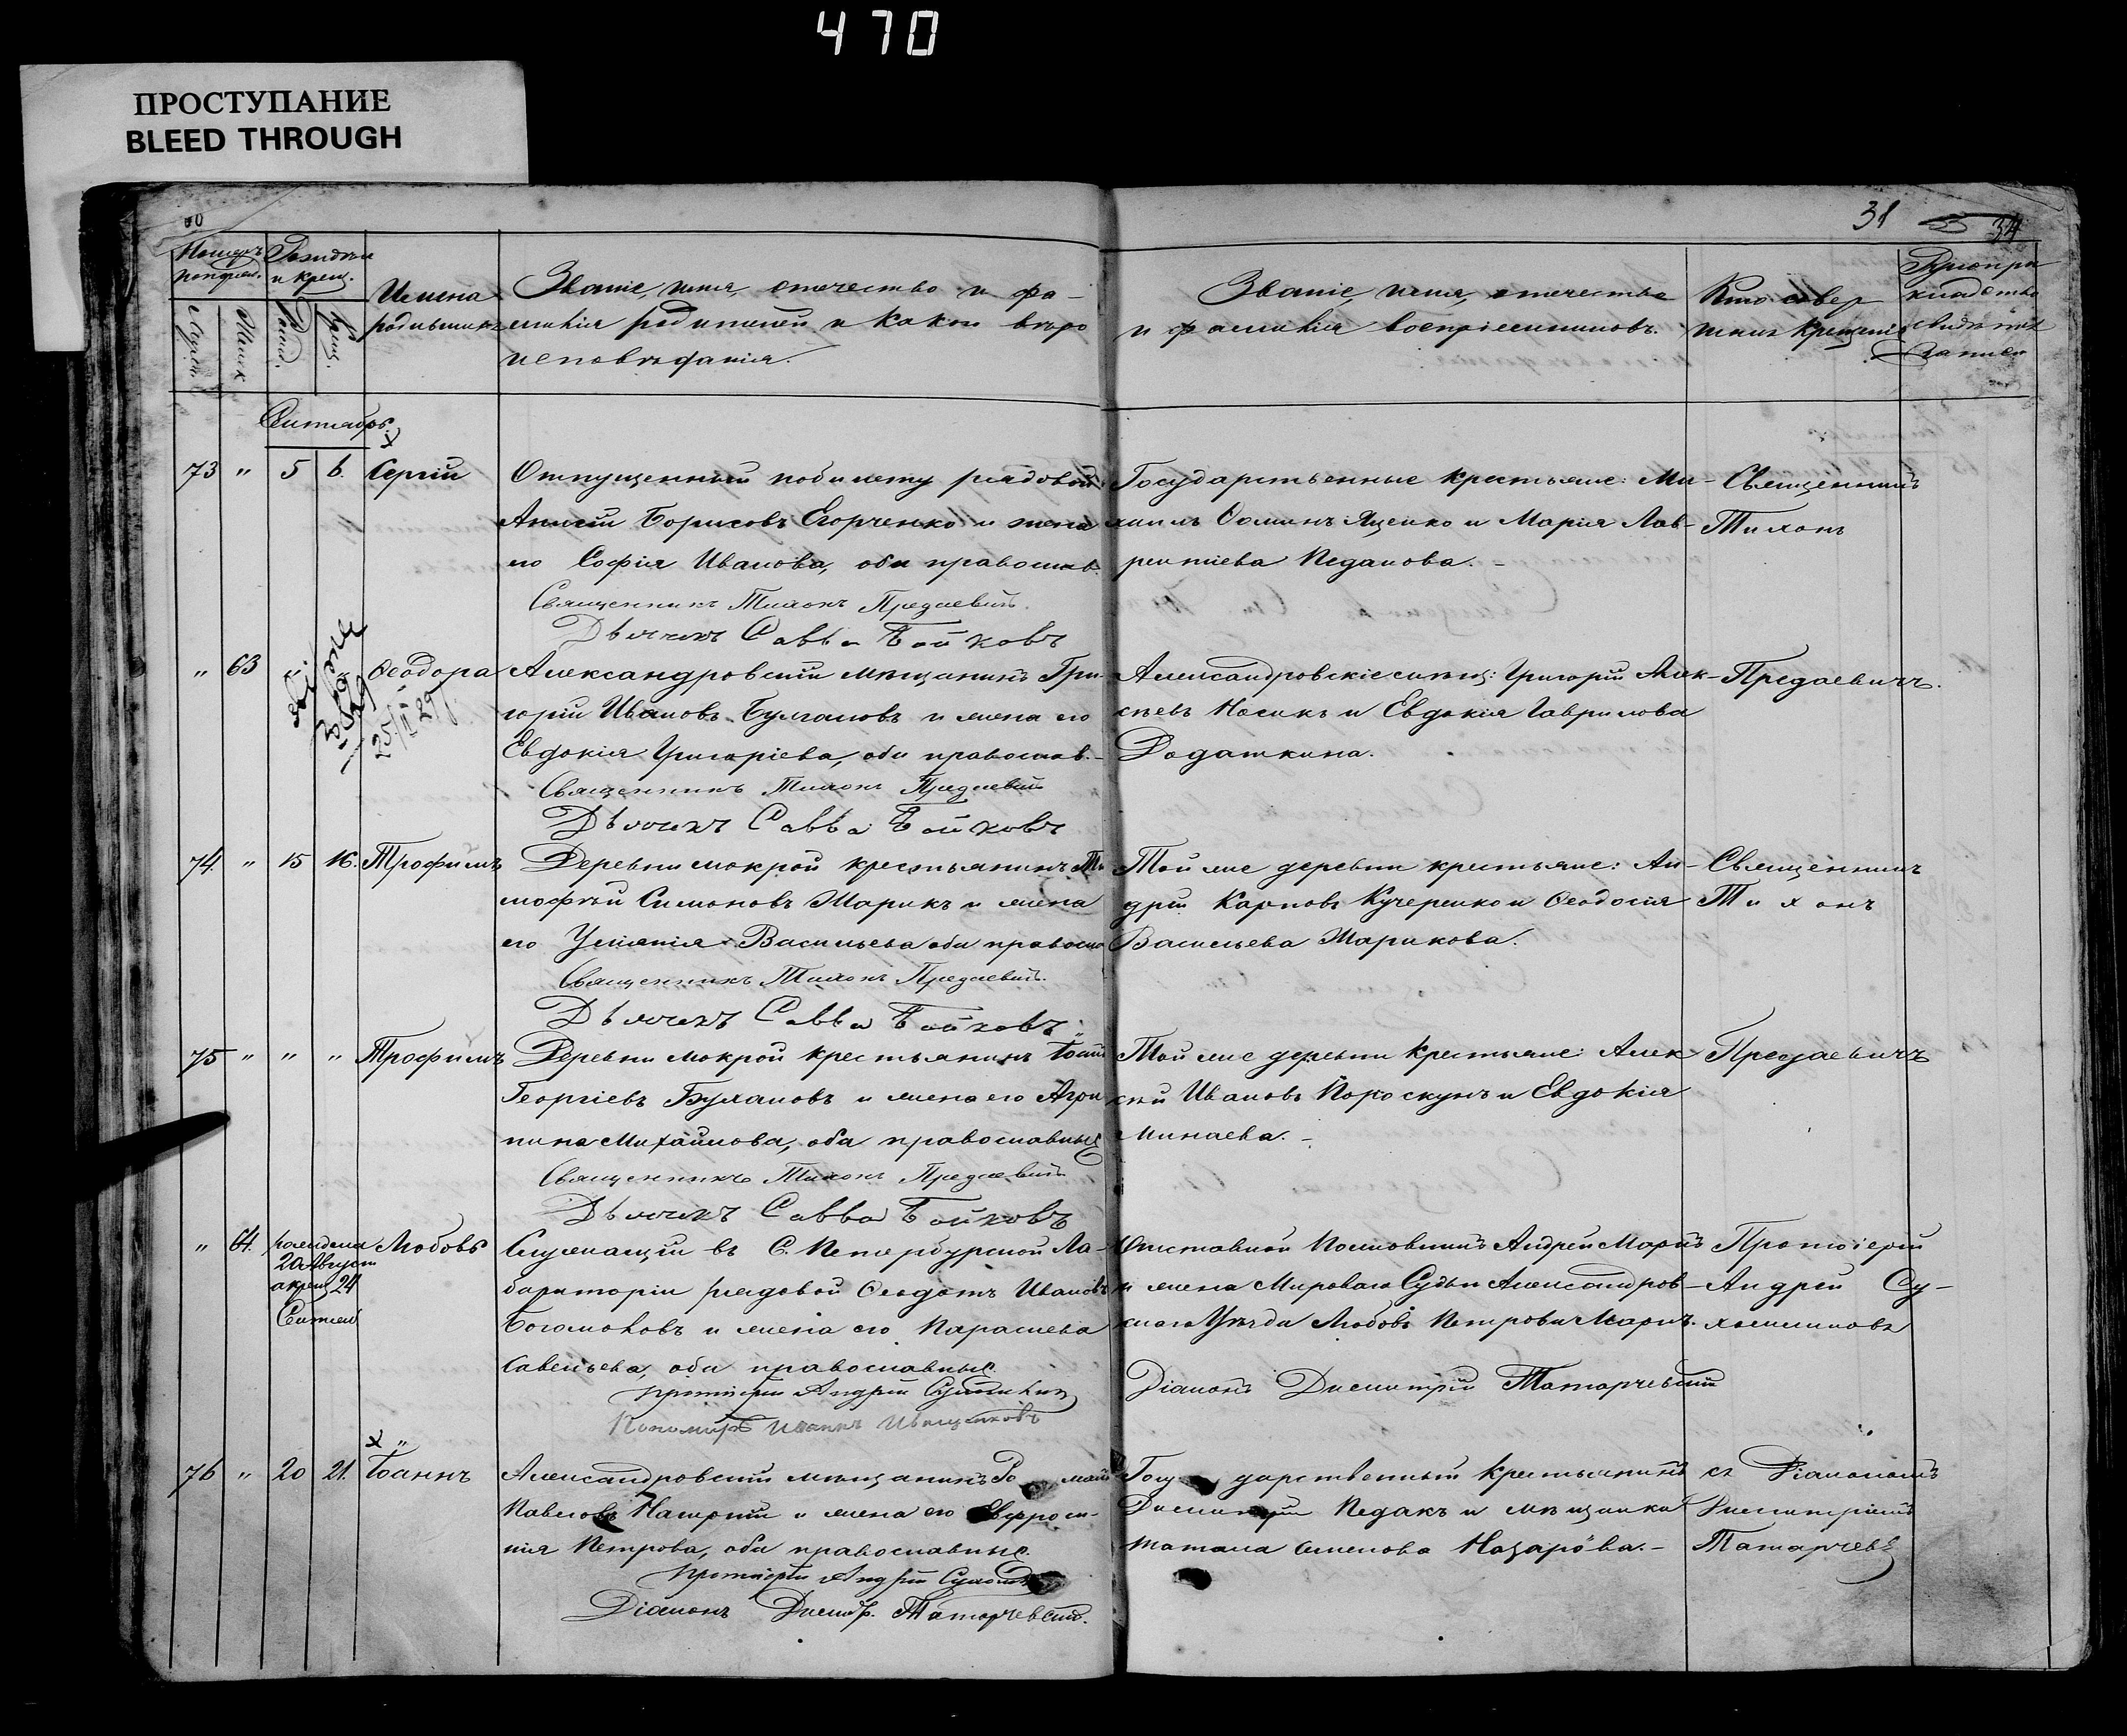 470
ПРОСТУПАНИЕ
BLEED THROUGH
31 34
Рожденія
и крещ.
Имена
родившихъ
Званіе, имя, отечество и фа-
милія родителей и какого вѣро
исповѣданія.
Званіе, имя, отечество
и фамилія воспріемниковъ.
Кто совер
шилъ крещеніе
Рукопри
кладство
свидѣтел
записи
Сентябрь.
73 " 5 6. Сергій
Отпущенный по билету рядовой
Борисовъ Егорченко и жена
его Софія Иванова, оба православ.
Священникъ Тихонъ Предаевичъ.
Дьячекъ Савва Бойковъ
Государственные крестьяне: Ми-
хаилъ Ѳоминъ Яценко и Марія Лав-
рентіева Педанова.
Священникъ
Тихонъ
" 63 Ѳеодора
25/II 29
Александровскій мѣщанинъ Гри-
горій Ивановъ Булгановъ и жена его
Евдокія Григоріева, оба православ.-
Священникъ Тихонъ Предаевичъ
Дьячекъ Савва Бойковъ
Александровскіе мѣщ: Григорій Алек-
сѣевъ Носикъ и Евдокія Гаврилова
Додаткина.
Предаевичъ.
74. " 15 16. Трофимъ
Деревни Мокрой крестьянинъ Ти
мофѣй Симоновъ Шарикъ и жена
его Васильева оба правосла
Священникъ Тихонъ Предаевичъ.
Дьячекъ Савва Бойковъ
Той же деревни крестьяне: Ан-
дрей Карповъ Кучеренко и Ѳеодосія
Васильева Шарикова.
Священникъ
Тихонъ
75 " " " Трофимъ
Деревни Мокрой крестьянинъ Іоаннъ
Георгіевъ Булановъ и жена его Агри
пина Михайлова, оба православные
Священникъ Тихонъ Предаевичъ
Дьячекъ Савва Бойковъ
Той же деревни крестьяне: Алек
сѣй Ивановъ Пороскунъ и Евдокія
Минаева.-
Предаевичъ
" 64. рождена
20 Август
а крещ 24
Сентяб
Любовь
Служащій въ С. Петербурской Ла-
бараторіи рядовой Ѳеодотъ Ивановъ
Богомоловъ и жена его Параскева
Савельева, оба православные
Протоіерей Андрей
Пономарь Иоаннъ Иващенковъ
Отставной Полковникъ Андрей Маркъ
и жена Мироваго Судьи Александров-
скаго Уѣзда Любовь Петрова Маркъ.
Діаконъ Димитрій Татарчевскій
Протоіерей
Андрей Су-
76 " 20 21. Іоаннъ
Александровскій мѣщанинъ Ро манъ
Павловъ и жена его Евфроси-
нія Петрова, оба православные
Протоіерей Андрей
Діаконъ Димитр. Татарчевскій.
Госу дарственный крестьянинъ
Димитрій Педакъ и мѣщанка
Наталія Семенова Назарова.-
съ Діакономъ
Димитріемъ
Татарчев